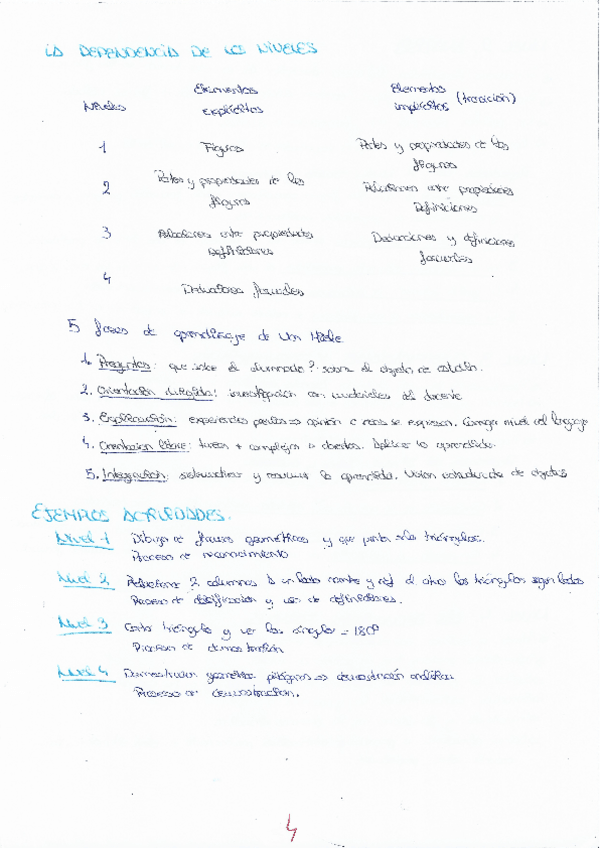 LA DEPENDENCIA DE LOS NIVELES
Niveles Elementos explícitos Elementos implícitos (transición)
1 Figuras Partes y propiedades de las figuras
2 Partes y propiedades de las figuras Relaciones entre propiedades Definiciones
3 Relaciones entre propiedades Definiciones Deducciones y definiciones formales
4 Deducciones formales
5 fases de aprendizaje de Van Hiele
1. Preguntas: que sabe el alumnado? sobre el objeto de estudio.
2. Orientación dirigida: investigación con materiales del docente
3. Explicación: experiencias previas => opinión se expresan. nivel del lenguaje
4. Orientacion libre: tareas + complejas abiertas. Aplicar lo aprendido.
5. Integración: sistematizar y resumir lo aprendido. Visión de objetos
EJEMPLOS ACTIVIDADES.
Nivel 1 Dibujo de figuras geométricas y que pinta solo triángulos.
Proceso de reconocimiento
Nivel 2 Relacionar 2 columnas en un lado nombre y el otro los triángulos según lados
Proceso de clasificación y uso de definiciones.
Nivel 3 triángulo y ver los = 180º
Proceso de demostración
Nivel 4 Demostrar pitágoras => demostración
Proceso de demostracion.
4